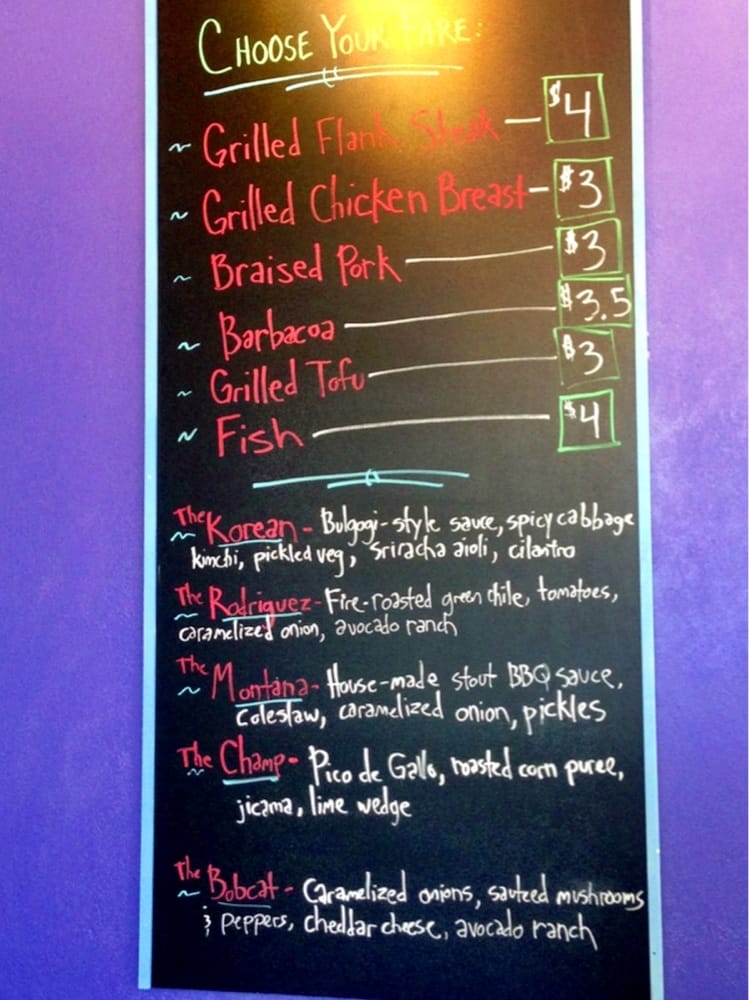 CHOOSE YOUR FARE:
~ Grilled Flank Steak — $4
~ Grilled Chicken Breast — $3
~ Braised Pork — $3
~ Barbacoa — $3.5
~ Grilled Tofu — $3
~ Fish — $4
The Korean - Bulgogi-style sauce, spicy cabbage
kimchi, pickled veg, sriracha aioli, cilantro
The Rodriguez - Fire-roasted green chile, tomatoes,
caramelized onion, avocado ranch
The Montana - House-made stout BBQ sauce,
Coleslaw, caramelized onion, pickles
The Champ - Pico de Gallo, roasted corn puree,
jicama, lime wedge
The Bobcat - Caramelized onions, sauteed mushrooms
& peppers, cheddar cheese, avocado ranch